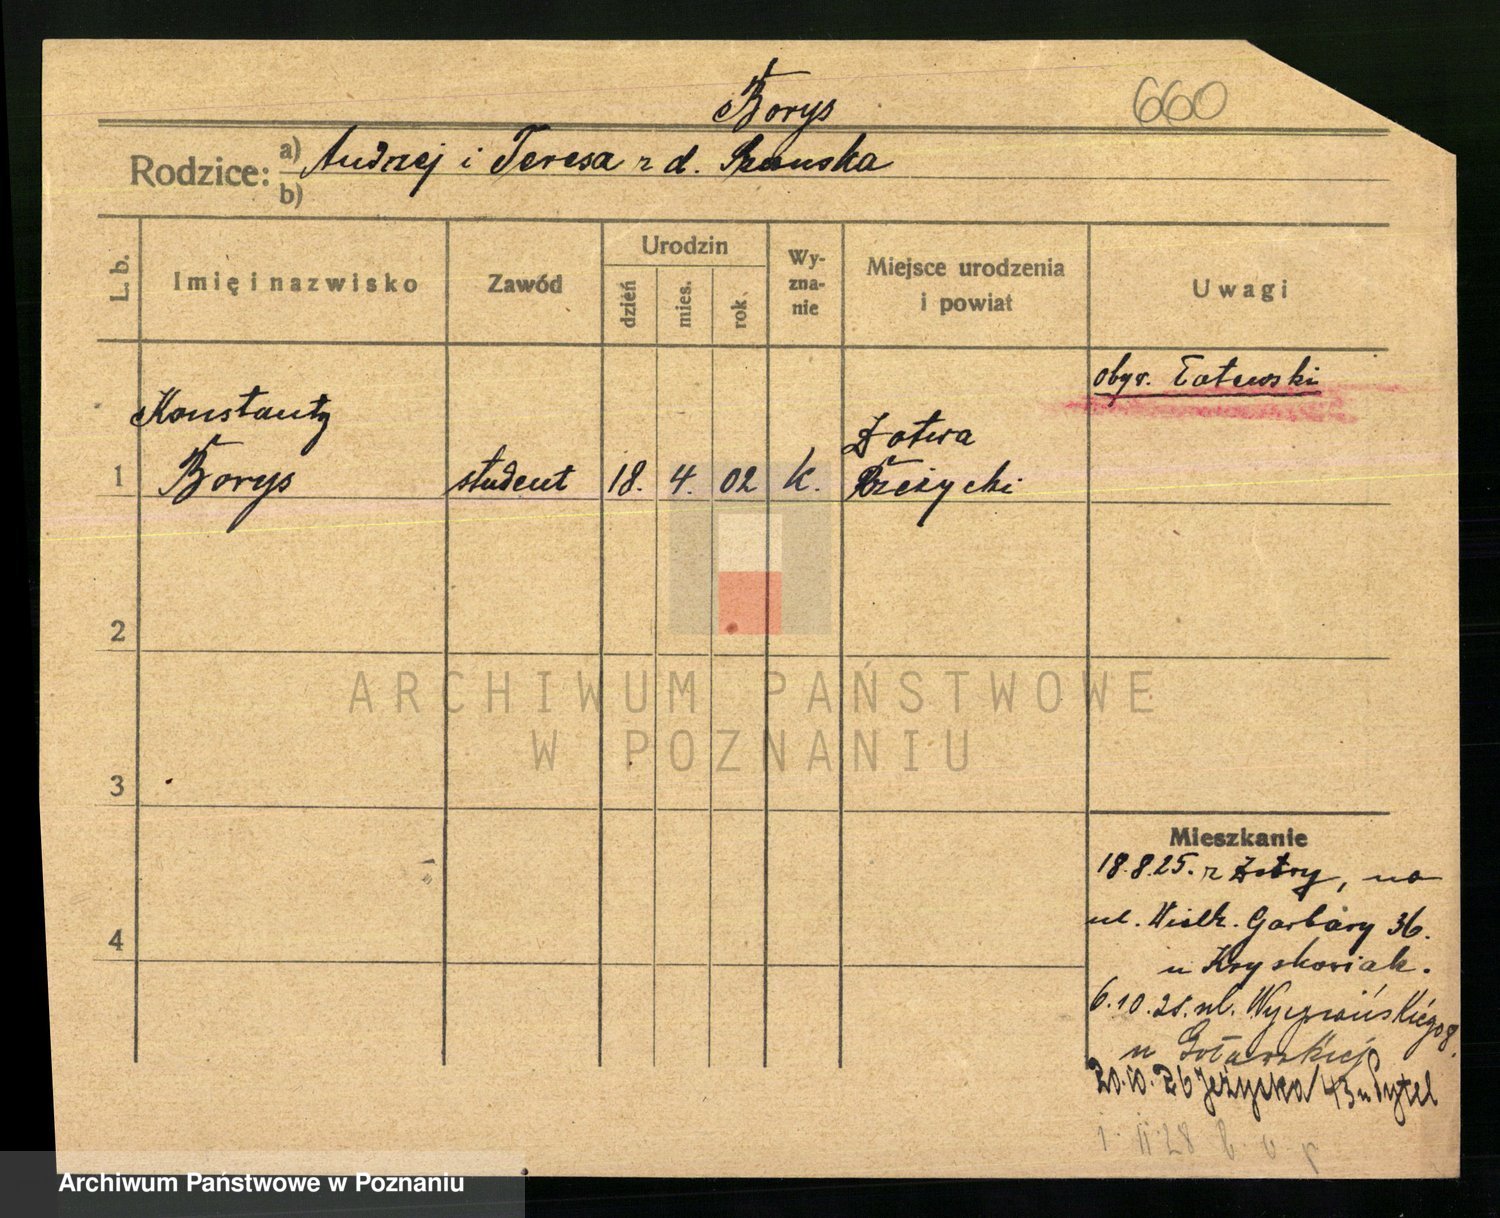 Borys
660
Rodzice: a) Andrzej i Teresa z d.
b)
L. b.
Imię i nazwisko
Zawód
Urodzin
dzień
mies.
rok
Wy-
zna-
nie
Miejsce urodzenia
i powiat
Uwagi
obyw. Łotewski
Konstanty
Łotwa
1 Borys student 18. 4. 02 k. Rzeżycki
2
ARCHIWUM PAŃSTWOWE
W POZNANIU
3
Mieszkanie
18.8.25. z Łotwy, na
ul. Wielk. Garbary 36.
4
u Kryskowiak.
6.10.25. ul.
u
20.10.26 Jeżycka 43 u Pytel
Archiwum Państwowe w Poznaniu